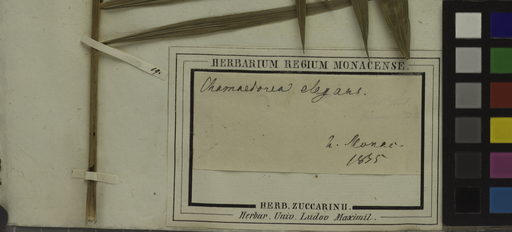 HERBARIUM REGIUM MONACENSE.
Chamaedorea elegans.
h. Monac.
1835
HERB. ZUCCARINII.
Herbar. Univ. Ludov Maximil.